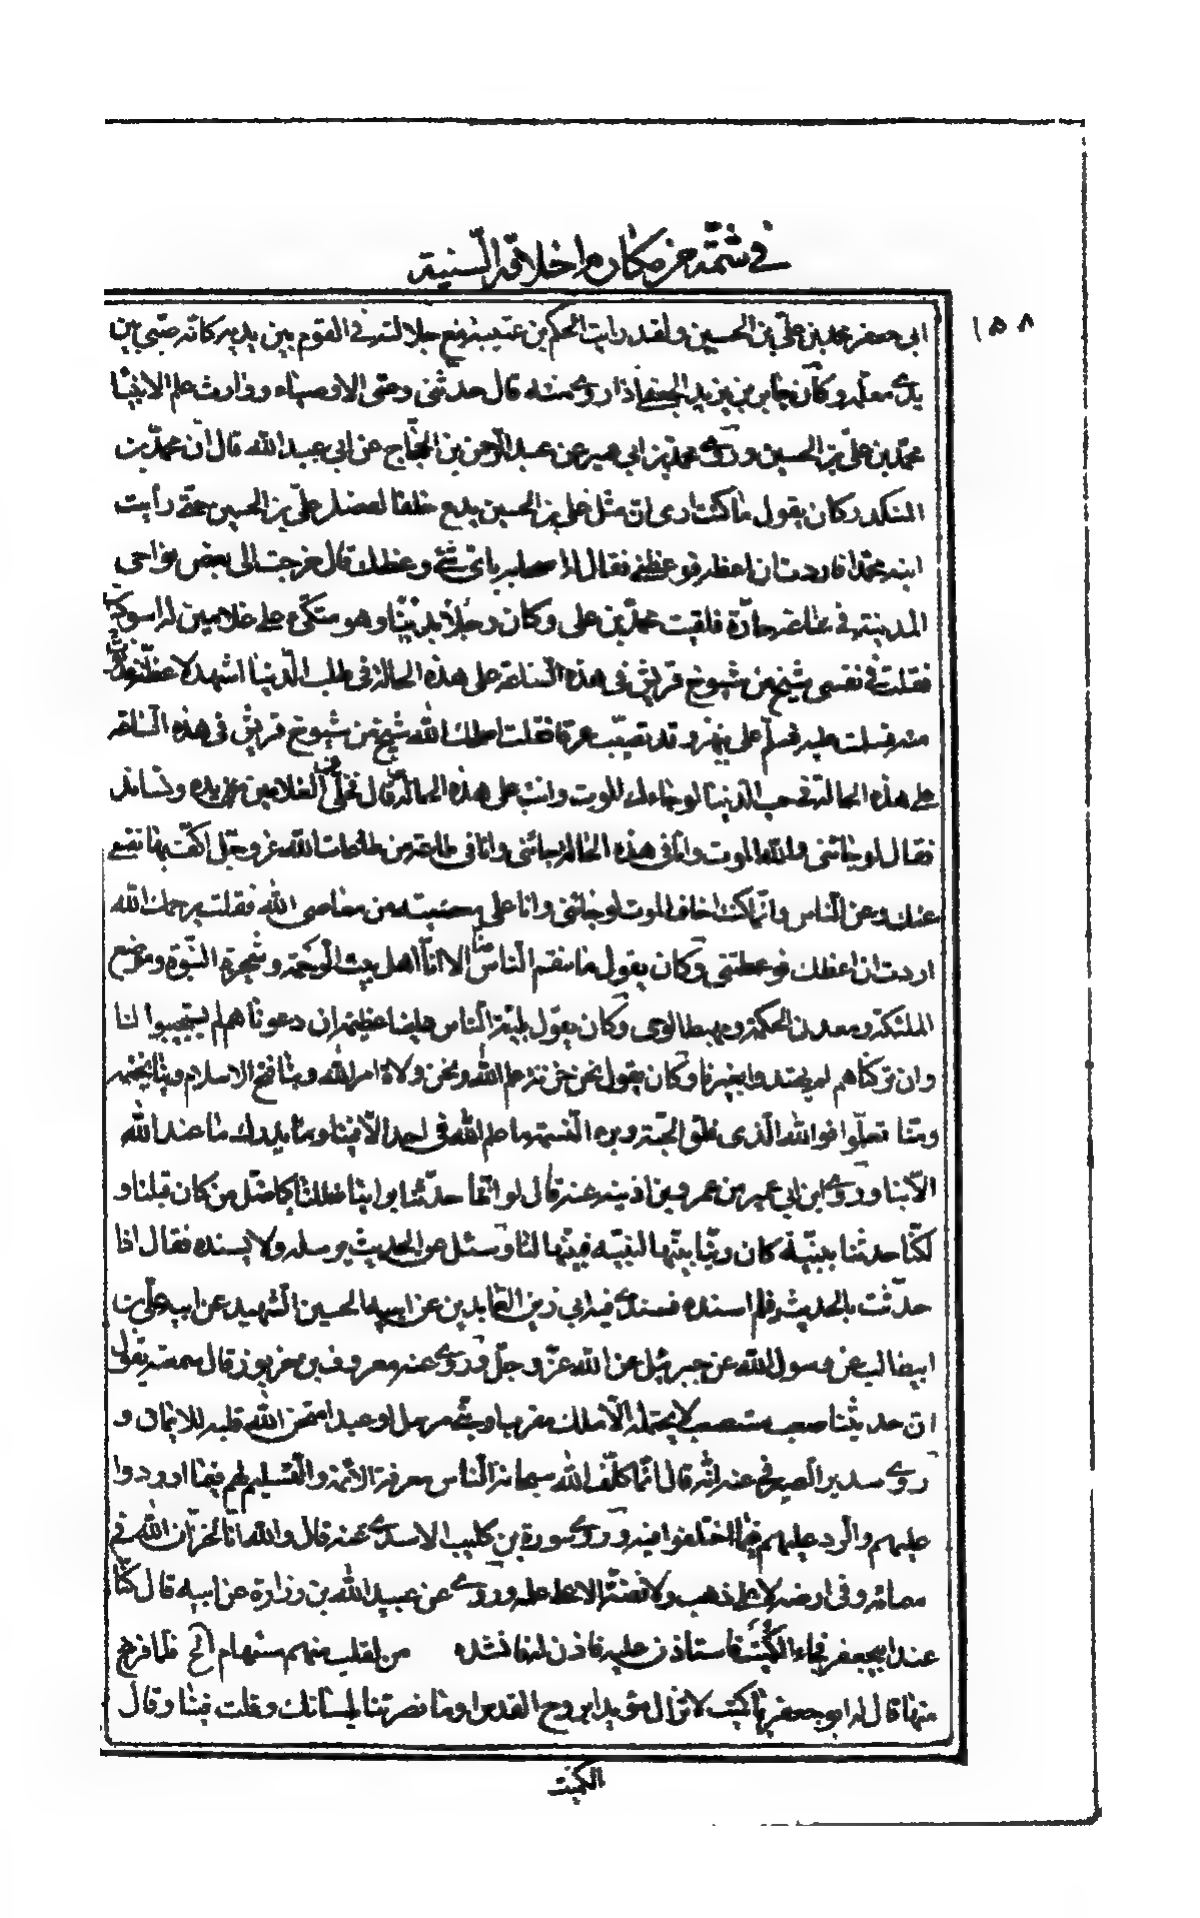 في شمّة من مكارم اخلاقه السنية
١٥٨
ابي جعفر محمد بن عليّ بن الحسين ولقد رايت الحكم بن عتيبة مع جلالته في القوم بين يديه كانّه صبّي بين
يدي معلّمه وكان جابر بن يزيد الجعفي اذا روي عنه قال حدثنى وصّى الاوصياء ووارث علم الانبيا
محمّد بن علىّ بن الحسين وروي محمد بن ابي عمير عن عبد الرّحمن بن الحجّاج عن ابي عبد الله قال انّ محمّد بن
المنكدر كان يقول ما كنت ارى ان مثل على بن الحسين يدع خلفا لفضل علىّ بن الحسين حتى رأيت
ابنه محمّدا فاردت ان اعظه فوعظني فقال له اصحابه باىّ شئ وعظك قال خرجت الى بعض نواحى
المدينة في ساعة حارّة فلقيت محمّد بن على وكان رجلا بدينا وهو متكّئ على غلامين له اسودين
فقلت في نفسى شيخ من شيوخ قريش في هذه الساعة على هذه الحالة في طلب الدّنيا اشهد لاعظنّه فدنوت
منه فسلّمت عليه فسلّم على بنهر وقد تصبّب عرقا فقلت اصلحك الله شيخ من شيوخ قريش في هذه السّاعة
على هذه الحالة في طلب الدنيا لو جاءك الموت وانت على هذه الحالة قال فخلّى عن الغلامين من يده وتساند
فقال لو جائنى والله الموت وانا في هذه الحالة جائنى وانا في طاعة من طاعات الله عزوجلّ اكفّ بها نفسي
عنك وعن النّاس وانّما كنت اخاف الموت لو جائنى وانا على معصيته من معاصى الله فقلت يرحمك الله
اردت ان اعظك فوعظتنى وكان يقول ما ينقم النّاس منّا الا انّا اهل بيت الرّحمة وشجرة النّبوّة وموضع
الملئكة ومعدن الحكمة ومهبط الوحى وكان يقول بليّة النّاس علينا عظيمة ان دعوناهم لم يستجيبوا لنا
وان تركناهم لم يهتدوا بغيرنا وكان يقول نحن خزنة علم الله ونحن ولاة امر الله وبنا فتح الاسلام وبنا يختمه
ومنّا تعلّموا فوالله الّذى فلق الحبّة وبرء النّسمة ما علم الله في احد الّا فينا وما يدرك ما عند الله
الّا بنا وروي ابن ابي عمير عن عمر وبن اذينه عنه قال لو انّما حدّثنا براينا ضللنا كما ضلّ من كان قبلنا و
لكنّا حدثنا ببيّنة كان ربّنا بيّنها لنبيّه فبيّنها لنا وسئل عن الحديث يرسله ولا يسنده فقال اذا
حدّثت بالحديث فلم اسنده فسندي فيه ابي زين العابدين عن ابيه الحسين الشهيد عن ابيه علىّ بن
ابيطالب عن رسول الله عن جبرئيل عن الله عزّ وجلّ وروي عنه معروف بن خربوذ قال سمعته يقول
انّ حديثنا صعب مستصعب لا يحتمله الّا ملك مقرب او نبيّ مرسل او عبد امتحن الله قلبه للايمان و
روي سدير الصيرفي عنه انّه قال انّما كلّف الله سبحانه النّاس معرفة الائمّة والتسليم لهم فيما اوردوا
عليهم والرّد عليهم فيما اختلفوا فيه وروي سورة بن كليب الاسدي عنه قال والله انّا لخزّان الله في
سمائه وفي ارضه لا على ذهب ولا فضّة الا على علمه وروي عن عبيد الله بن زرارة عن ابيه قال كنّا
عند ابيجعفر فجاء الكميت فاستاذن عليه فاذن له فانشده من لقلب متيم مستهام الخ فلمّا فرغ
منها قال له ابو جعفر يا كميت لا تزال مؤيدا بروح القدس او ما نصرتنا بلسانك وقلت فينا وقال
الكميت